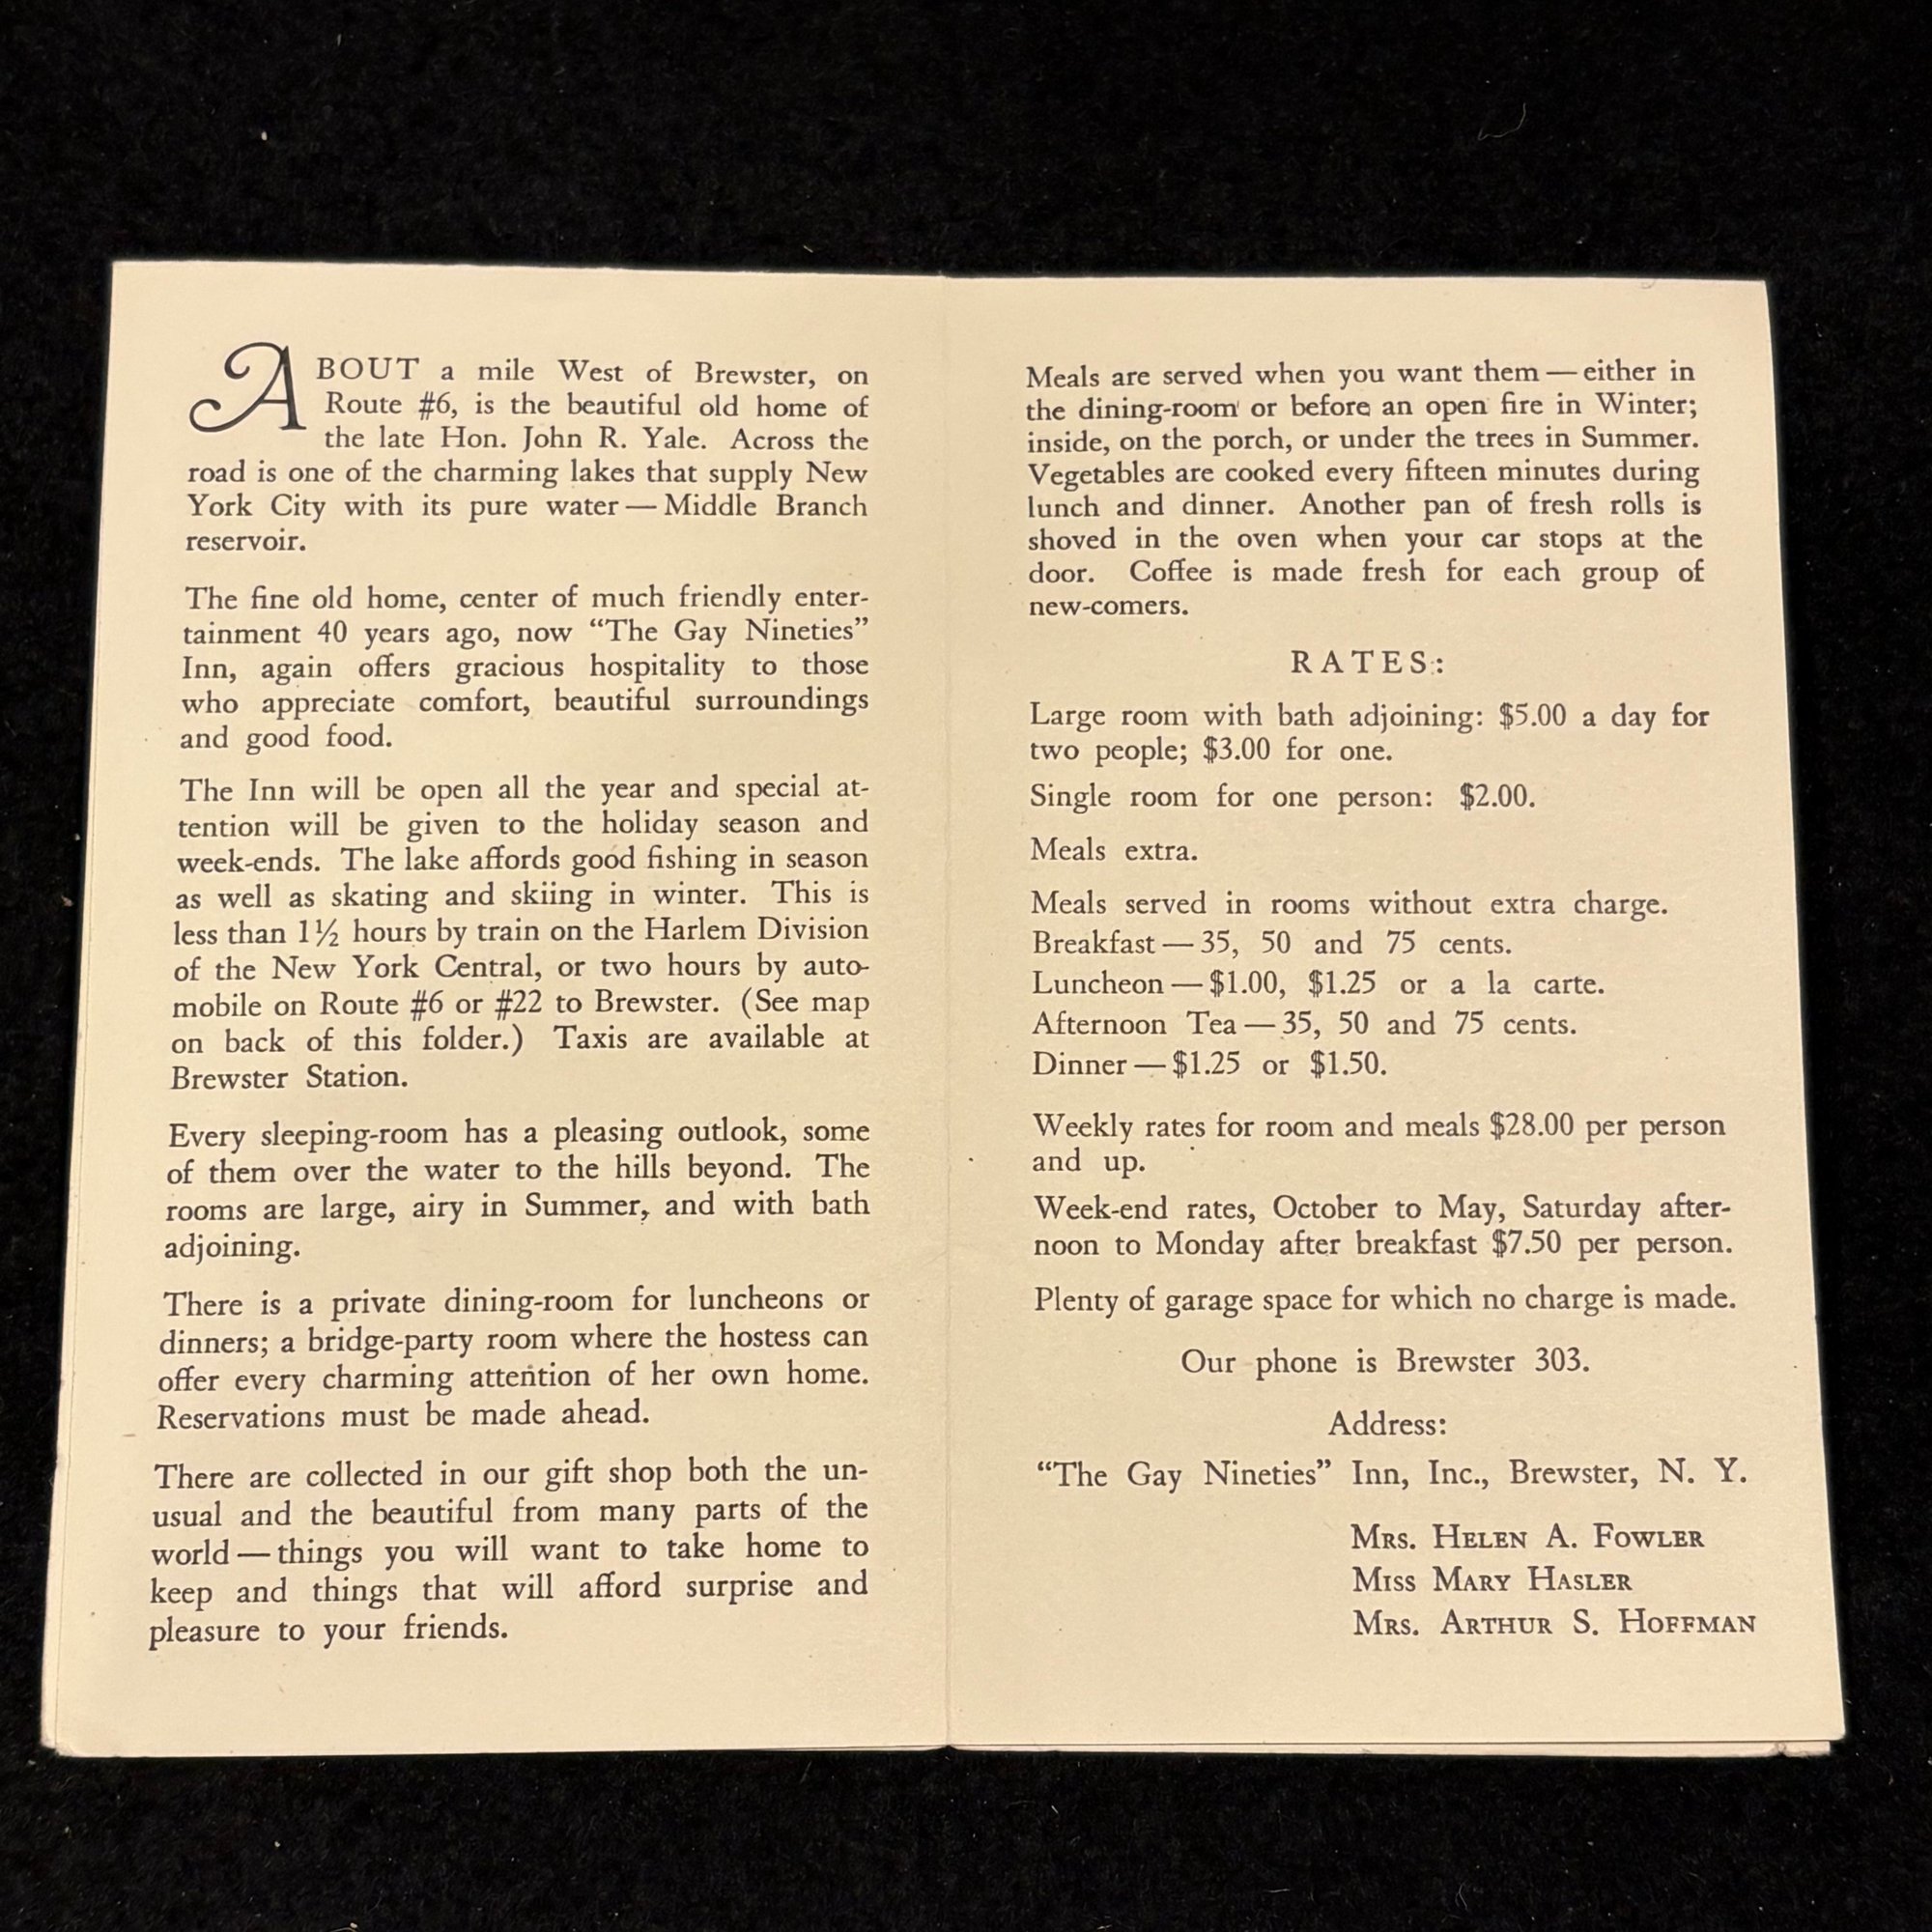 ABOUT a mile West of Brewster, on
Route #6, is the beautiful old home of
the late Hon. John R. Yale. Across the
road is one of the charming lakes that supply New
York City with its pure water — Middle Branch
reservoir.
The fine old home, center of much friendly enter-
tainment 40 years ago, now “The Gay Nineties”
Inn, again offers gracious hospitality to those
who appreciate comfort, beautiful surroundings
and good food.
The Inn will be open all the year and special at-
tention will be given to the holiday season and
week-ends. The lake affords good fishing in season
as well as skating and skiing in winter. This is
less than 1½ hours by train on the Harlem Division
of the New York Central, or two hours by auto-
mobile on Route #6 or #22 to Brewster. (See map
on back of this folder.) Taxis are available at
Brewster Station.
Every sleeping-room has a pleasing outlook, some
of them over the water to the hills beyond. The
rooms are large, airy in Summer, and with bath
adjoining.
There is a private dining-room for luncheons or
dinners; a bridge-party room where the hostess can
offer every charming attention of her own home.
Reservations must be made ahead.
There are collected in our gift shop both the un-
usual and the beautiful from many parts of the
world — things you will want to take home to
keep and things that will afford surprise and
pleasure to your friends.
Meals are served when you want them — either in
the dining-room or before an open fire in Winter;
inside, on the porch, or under the trees in Summer.
Vegetables are cooked every fifteen minutes during
lunch and dinner. Another pan of fresh rolls is
shoved in the oven when your car stops at the
door. Coffee is made fresh for each group of
new-comers.
RATES:
Large room with bath adjoining: $5.00 a day for
two people; $3.00 for one.
Single room for one person: $2.00.
Meals extra.
Meals served in rooms without extra charge.
Breakfast — 35, 50 and 75 cents.
Luncheon — $1.00, $1.25 or a la carte.
Afternoon Tea — 35, 50 and 75 cents.
Dinner — $1.25 or $1.50.
Weekly rates for room and meals $28.00 per person
and up.
Week-end rates, October to May, Saturday after-
noon to Monday after breakfast $7.50 per person.
Plenty of garage space for which no charge is made.
Our phone is Brewster 303.
Address:
“The Gay Nineties” Inn, Inc., Brewster, N. Y.
MRS. HELEN A. FOWLER
MISS MARY HASLER
MRS. ARTHUR S. HOFFMAN